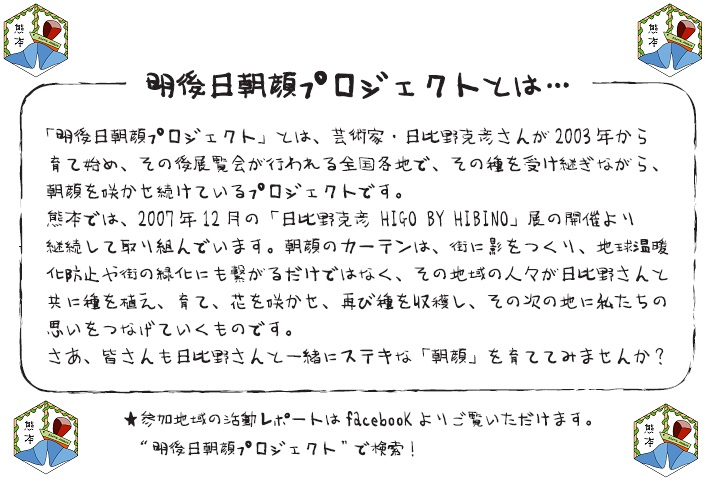 熊本
熊本
明後日朝顔プロジェクトとは…
「明後日朝顔プロジェクト」とは、芸術家・日比野克彦さんが2003年から
育て始め、その後展覧会が行われる全国各地で、その種を受け継ぎながら、
朝顔を咲かせ続けているプロジェクトです。
熊本では、2007年12月の「日比野克彦 HIGO BY HIBINO」展の開催より
継続して取り組んでいます。朝顔のカーテンは、街に影をつくり、地球温暖
化防止や街の緑化にも繋がるだけではなく、その地域の人々が日比野さんと
共に種を植え、育て、花を咲かせ、再び種を収穫し、その次の地に私たちの
思いをつなげていくものです。
さあ、皆さんも日比野さんと一緒にステキな「朝顔」を育ててみませんか？
★参加地域の活動レポートはfacebooKよりご覧いただけます。
“明後日朝顔プロジェクト”で検索！
熊本
熊本